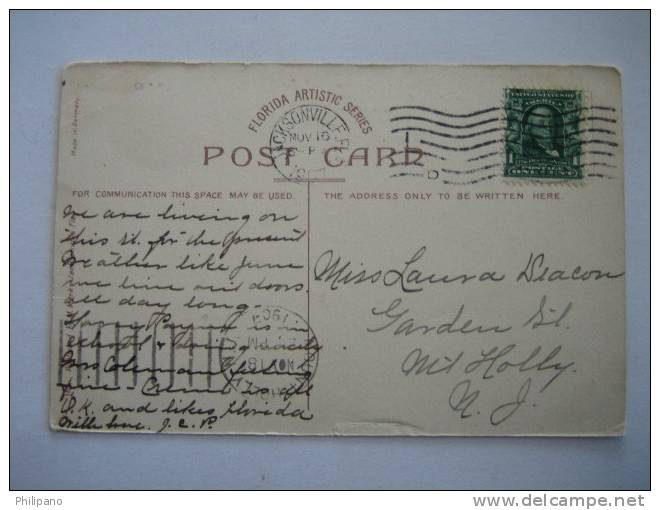 FLORIDA ARTISTIC SERIES
JACKSONVILLE, FLA.
NOV 16
POST CARD
Made in Germany
FOR COMMUNICATION THIS SPACE MAY BE USED.
THE ADDRESS ONLY TO BE WRITTEN HERE.
UNITED STATES OF AMERICA
1 POSTAGE 1
ONE CENT
We are living on
this St. for the present
Weather like June
we live out doors
all day long.
is in
school &
fine.
O.K. and likes Florida
With love. J.C.P.
Miss Laura Deacon
Garden St.
Mt Holly
N. J.
NOV 18
Philipano
www.delcampe.net